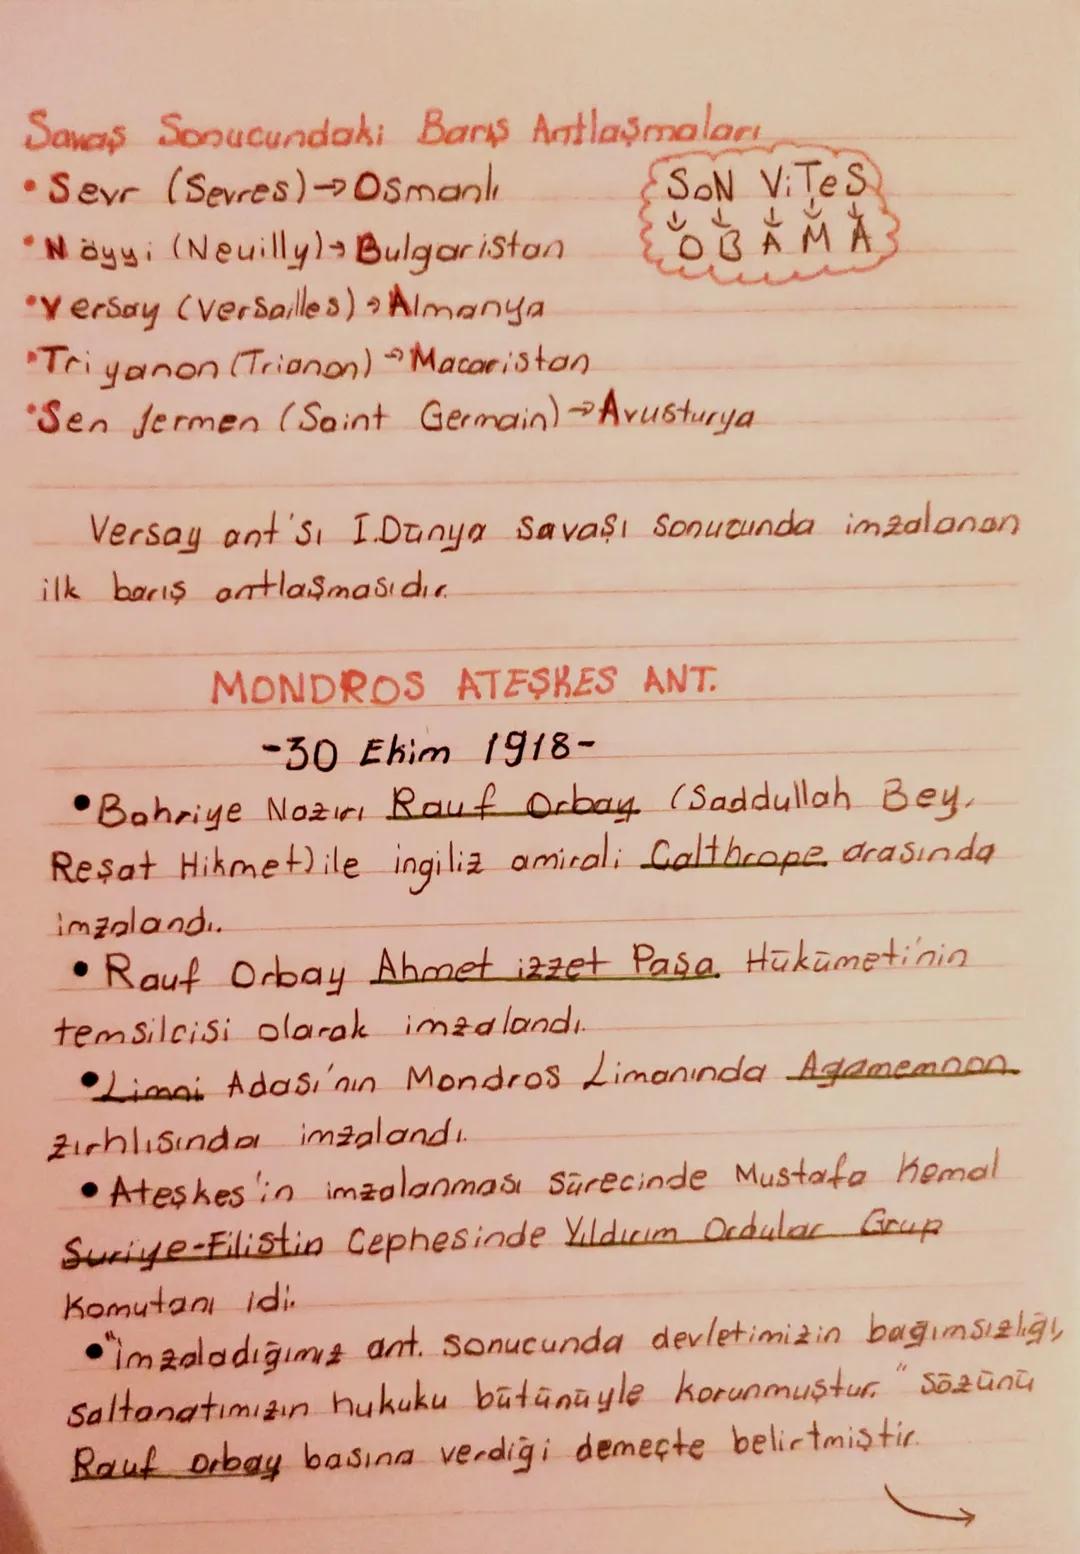 Savaş Sonucundaki Barış Antlaşmaları
• Sevr (Sevres) → Osmanlı
• Nöyyi (Neuilly) → Bulgaristan
• Versay (Versailles) → Almanya
• Triyanon (Trianon) → Macaristan
• Sen Jermen (Saint Germain) → Avusturya
SON ViTeS
↓ ↓ ↓ ↓ ↓
O B A M A
Versay ant'sı I.Dünya Savaşı Sonucunda imzalanan
ilk barış antlaşmasıdır.
MONDROS ATEŞKES ANT.
-30 Ekim 1918-
• Bahriye Nazırı Rauf Orbay (Saddullah Bey,
Reşat Hikmet) ile ingiliz amirali Calthrope arasında
imzalandı.
• Rauf Orbay Ahmet izzet Paşa Hükümeti'nin
temsilcisi olarak imzalandı.
• Limni Adası'nın Mondros Limanında Agamemnon
zırhlısında imzalandı.
• Ateşkes'in imzalanması Sürecinde Mustafa Kemal
Suriye-Filistin Cephesinde Yıldırım Ordular Grup
Komutanı idi.
• "imzaladığımız ant. Sonucunda devletimizin bağımsızlığı,
Saltanatımızın hukuku bütünüyle korunmuştur." Sözünü
Rauf Orbay basına verdiği demeçte belirtmiştir.
→